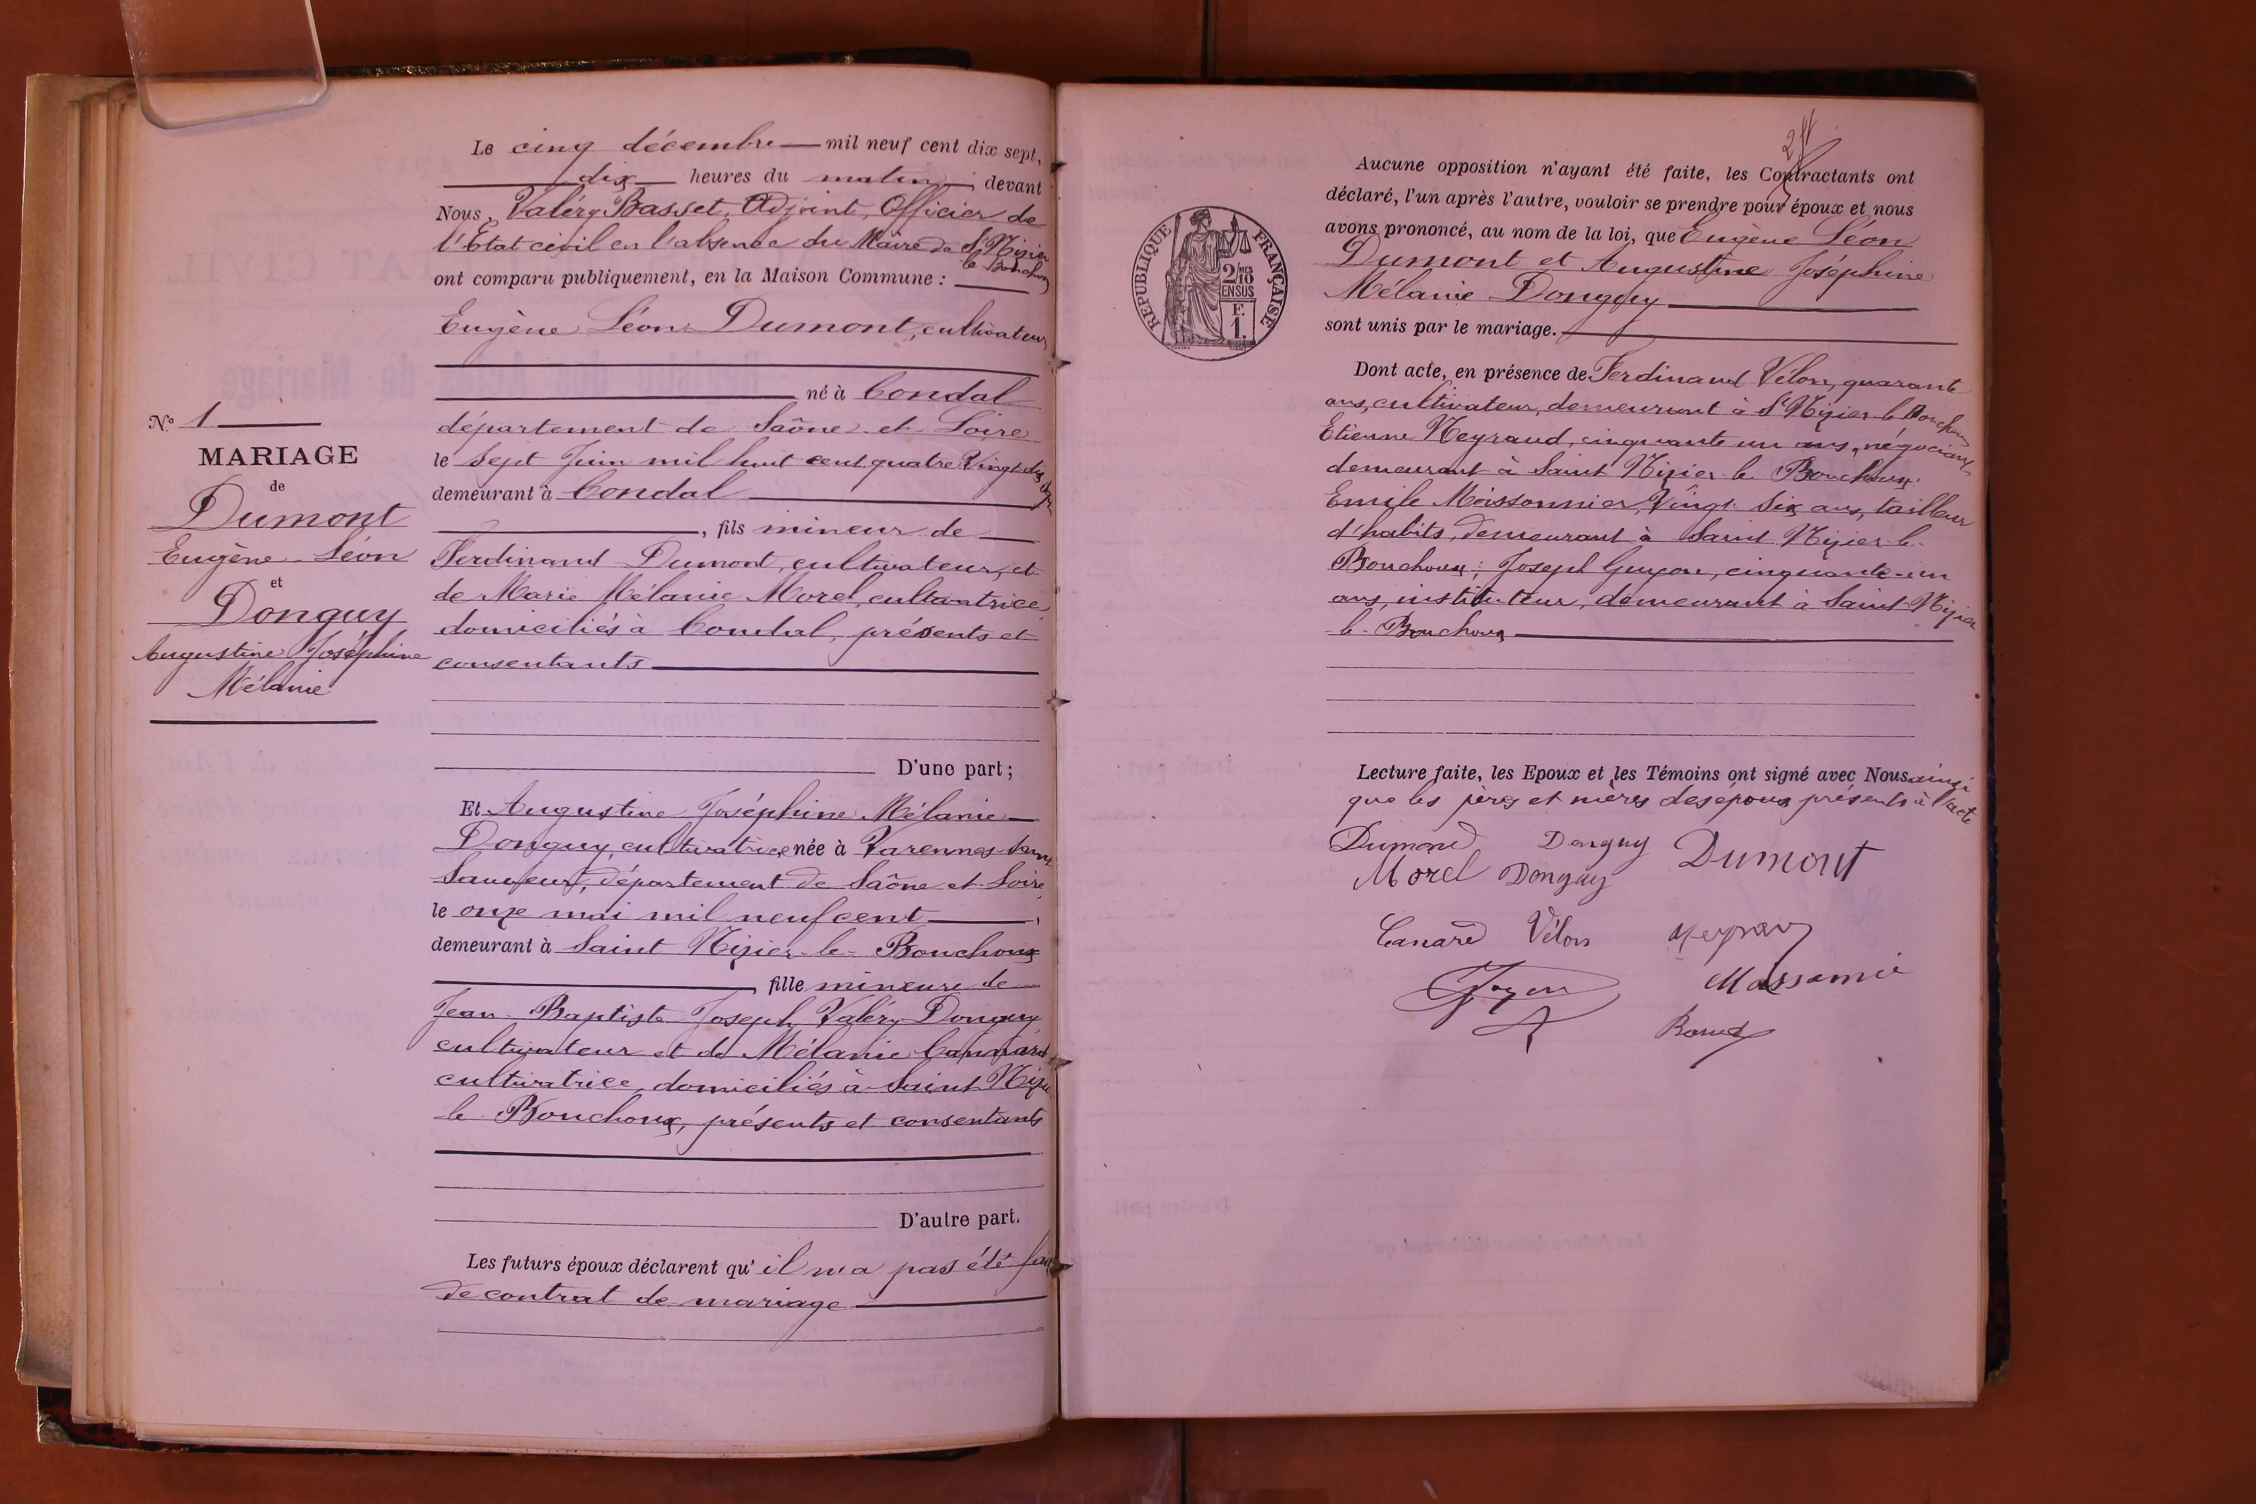 Le cinq décembre mil neuf cent dix sept,
dix heures du matin, devant
Nous, Valéry Basset, Adjoint, Officier de
l'Etat civil en l'absence du Maire de St Nizier
le Bouchoux
ont comparu publiquement, en la Maison Commune :
Eugène Léon Dumont, cultivateur
né à Condal
département de Saône et Loire
le sept Juin mil huit cent quatre Vingt dix sept
demeurant à Condal
, fils mineur de
Ferdinand Dumont, cultivateur, et
de Marie Mélanie Morel, cultivatrice
domiciliés à Condal, présents et
consentants
D'une part ;
N° 1
MARIAGE
de
Dumont
Eugène Léon
et
Donguy
Augustine Joséphine
Mélanie
Et Augustine Joséphine Mélanie
Donguy, cultivatrice née à Varennes Saint
Sauveur, département de Saône et Loire,
le onze mai mil neuf cent,
demeurant à Saint Nizier le Bouchoux
, fille mineure de
Jean Baptiste Joseph Valéry Donguy
cultivateur et de Mélanie Cannard
cultivatrice, domiciliés à Saint Nizier
le Bouchoux, présents et consentants
D'autre part.
Les futurs époux déclarent qu'il n'a pas été fait
de contrat de mariage
Aucune opposition n'ayant été faite, les Contractants ont
déclaré, l'un après l'autre, vouloir se prendre pour époux et nous
avons prononcé, au nom de la loi, que Eugène Léon
Dumont et Augustine Joséphine
Mélanie Donguy
sont unis par le mariage.
RÉPUBLIQUE FRANÇAISE
2/10 MES
EN SUS
F.
1.
Dont acte, en présence de Ferdinand Vélon, quarante
ans, cultivateur, demeurant à St Nizier le Bouchoux
Etienne Neyraud, cinquante un ans, négociant
demeurant à Saint Nizier le Bouchoux.
Emile Moissonnier, Vingt six ans, tailleur
d'habits, demeurant à Saint Nizier le
Bouchoux ; Joseph Guyon, cinquante un
ans, instituteur, demeurant à Saint Nizier
le Bouchoux
Lecture faite, les Epoux et les Témoins ont signé avec Nous ainsi
que les pères et mères des époux présents à l'acte
Dumont Donguy Dumont
Morel Donguy
Canard Vélon